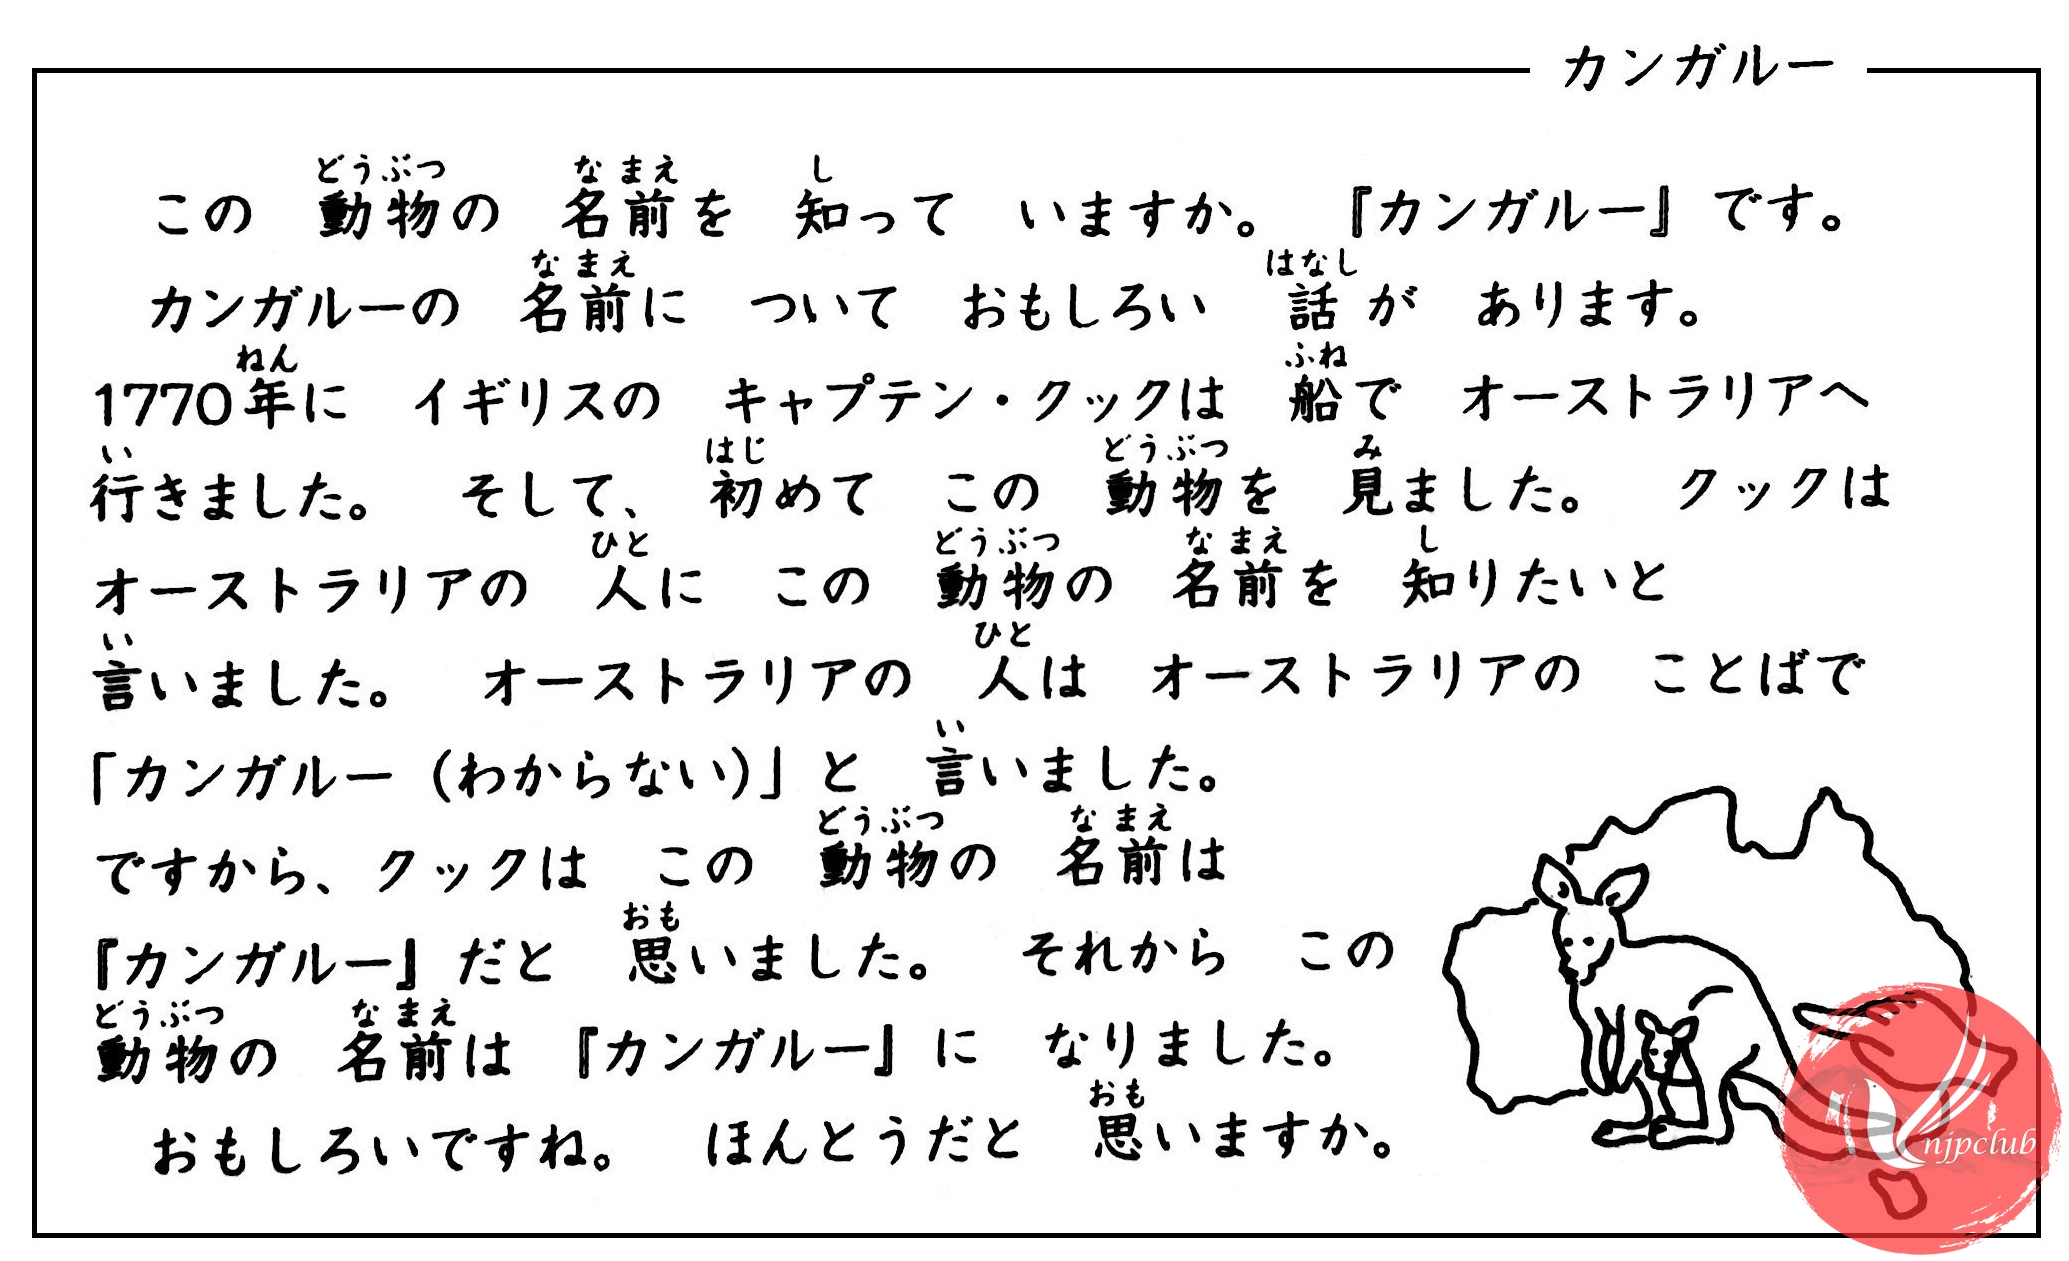 カンガルー
この 動物の 名前を 知って いますか。 『カンガルー』です。
カンガルーの 名前に ついて おもしろい 話が あります。
1770年に イギリスの キャプテン・クックは 船で オーストラリアへ
行きました。 そして、 初めて この 動物を 見ました。 クックは
オーストラリアの 人に この 動物の 名前を 知りたいと
言いました。 オーストラリアの 人は オーストラリアの ことばで
「カンガルー (わからない)」と 言いました。
ですから、クックは この 動物の 名前は
『カンガルー』だと 思いました。 それから この
動物の 名前は 『カンガルー』に なりました。
おもしろいですね。 ほんとうだと 思いますか。
njpclub